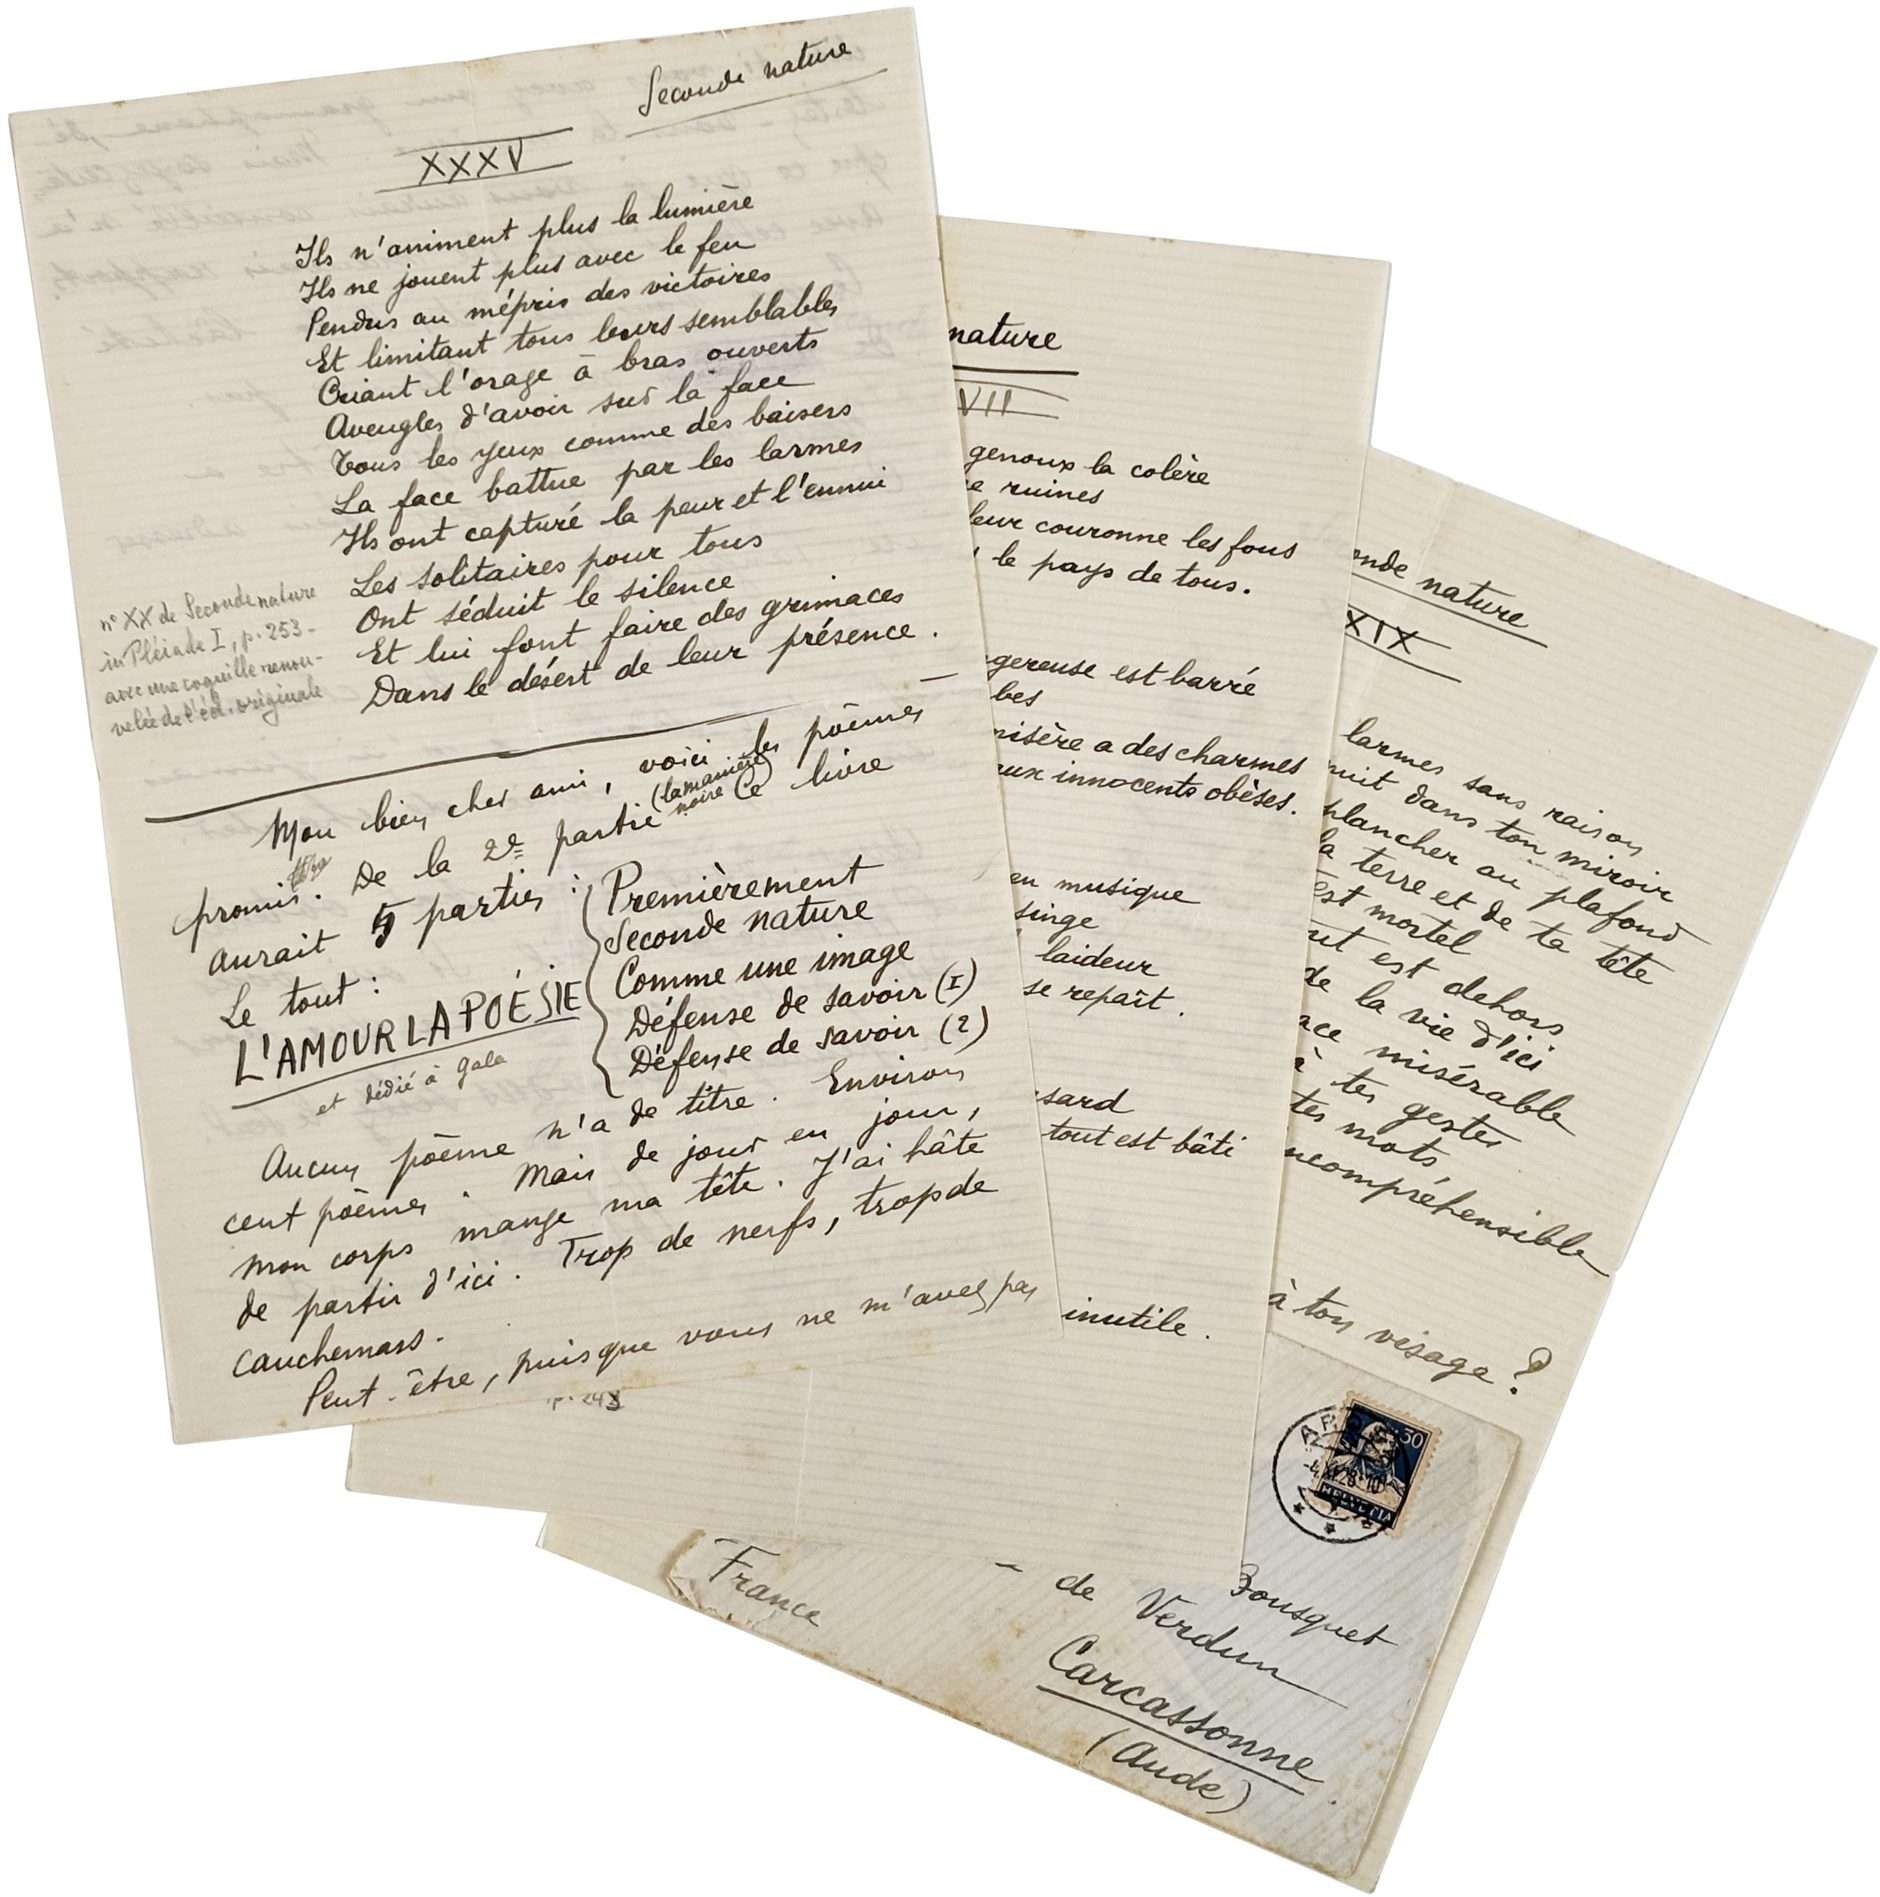 Seconde nature
XXXV
Ils n'animent plus la lumière
Ils ne jouent plus avec le feu
Pendus au mépris des victoires
Et limitant tous leurs semblables
Criant l'orage à bras ouverts
Aveugles d'avoir sur la face
Tous les yeux comme des baisers
La face battue par les larmes
Ils ont capturé la peur et l'ennui
Les solitaires pour tous
Ont séduit le silence
Et lui font faire des grimaces
Dans le désert de leur présence.
n° XX de Seconde nature
in Pléiade I, p. 253 -
avec une coquille renou-
velée de l'éd. originale
Mon bien cher ami, voici les poèmes
promis. De la 2e partie (la manière noire) Ce livre
aurait 5 parties :
Premièrement
Seconde nature
Comme une image
Défense de savoir (I)
Défense de savoir (2)
Le tout :
L'AMOUR LA POÉSIE
et dédié à Gala
Aucun poème n'a de titre. Environ
cent poèmes. Mais de jour en jour,
mon corps mange ma tête. J'ai hâte
de partir d'ici. Trop de nerfs, trop de
cauchemars.
Peut-être, puisque vous ne m'avez pas
nature
VII
genoux la colère
ruines
leur couronne les fous
le pays de tous.
gereuse est barré
bes
misère a des charmes
aux innocents obèses.
en musique
singe
laideur
se repaît.
sard
tout est bâti
inutile.
p. 243
onde nature
XIX
larmes sans raison
nuit dans ton miroir
plancher au plafond
la terre et de ta tête
est mortel
ut est dehors
de la vie d'ici
ace misérable
à tes gestes
tes mots
ncompréhensible
à ton visage ?
AROSA
-4.XI.28-10
30
HELVETIA
Bousquet
de Verdun
Carcassonne
(Aude)
France